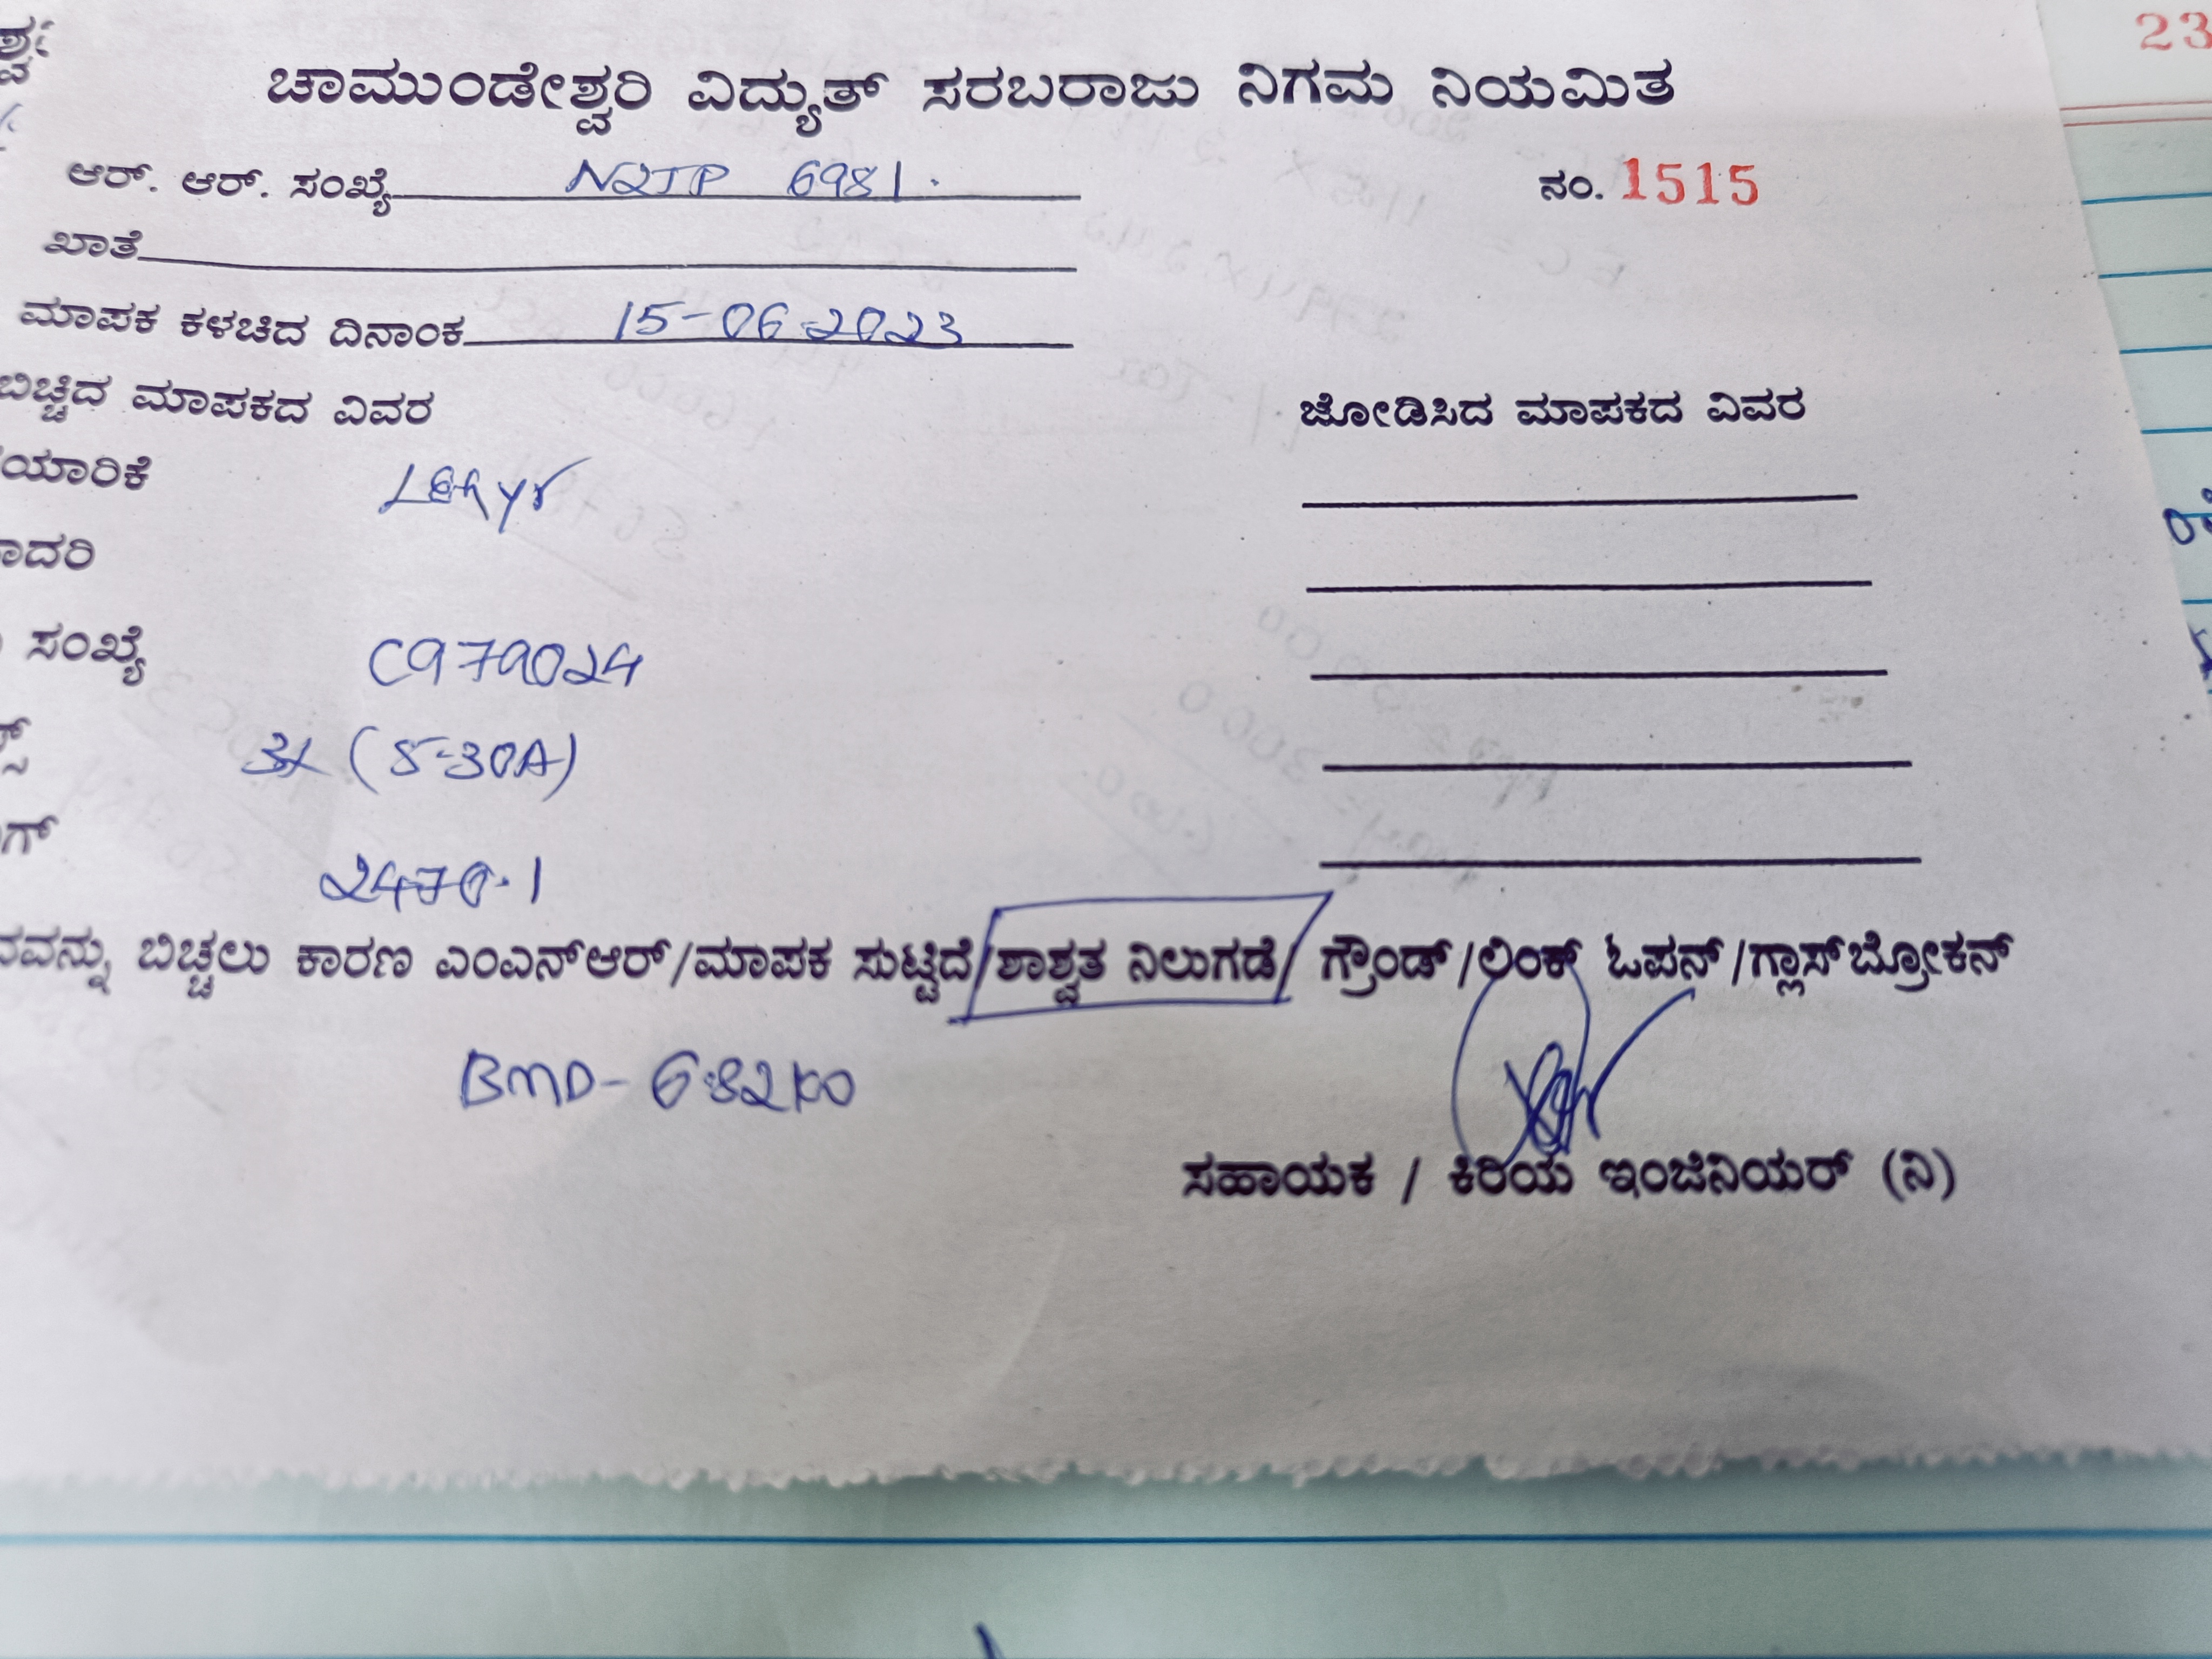 ಚಾಮುಂಡೇಶ್ವರಿ ವಿದ್ಯುತ್ ಸರಬರಾಜು ನಿಗಮ ನಿಯಮಿತ
ಆರ್. ಆರ್. ಸಂಖ್ಯೆ N2JP 6981. ನಂ. 1515
ಖಾತೆ
ಮಾಪಕ ಕಳಚಿದ ದಿನಾಂಕ 15-06-2023
ಬಿಚ್ಚಿದ ಮಾಪಕದ ವಿವರ ಜೋಡಿಸಿದ ಮಾಪಕದ ವಿವರ
ಯಾರಿಕೆ
ಾದರಿ
ಸಂಖ್ಯೆ C979024
(5-30A)
2470.1
ನವನ್ನು ಬಿಚ್ಚಲು ಕಾರಣ ಎಂಎನ್‌ಆರ್/ಮಾಪಕ ಸುಟ್ಟಿದೆ/ಶಾಶ್ವತ ನಿಲುಗಡೆ/ ಗ್ರೌಂಡ್/ಲಿಂಕ್ ಓಪನ್/ಗ್ಲಾಸ್‌ಬ್ರೋಕನ್
BMD-
ಸಹಾಯಕ / ಕಿರಿಯ ಇಂಜಿನಿಯರ್ (ನಿ)
23